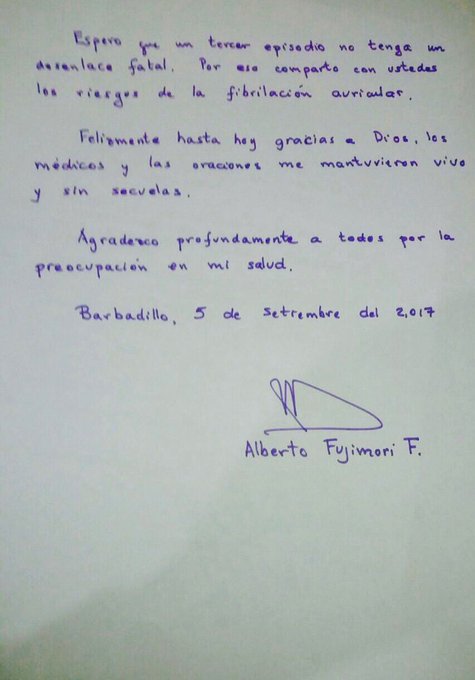 Espero que un tercer episodio no tenga un
desenlace fatal. Por eso comparto con ustedes
los riesgos de la fibrilación auricular.
Felizmente hasta hoy gracias a Dios, los
médicos y las oraciones me mantuvieron vivo
y sin secuelas.
Agradezco profundamente a todos por la
preocupación en mi salud.
Barbadillo, 5 de Setiembre del 2,017
Alberto Fujimori F.